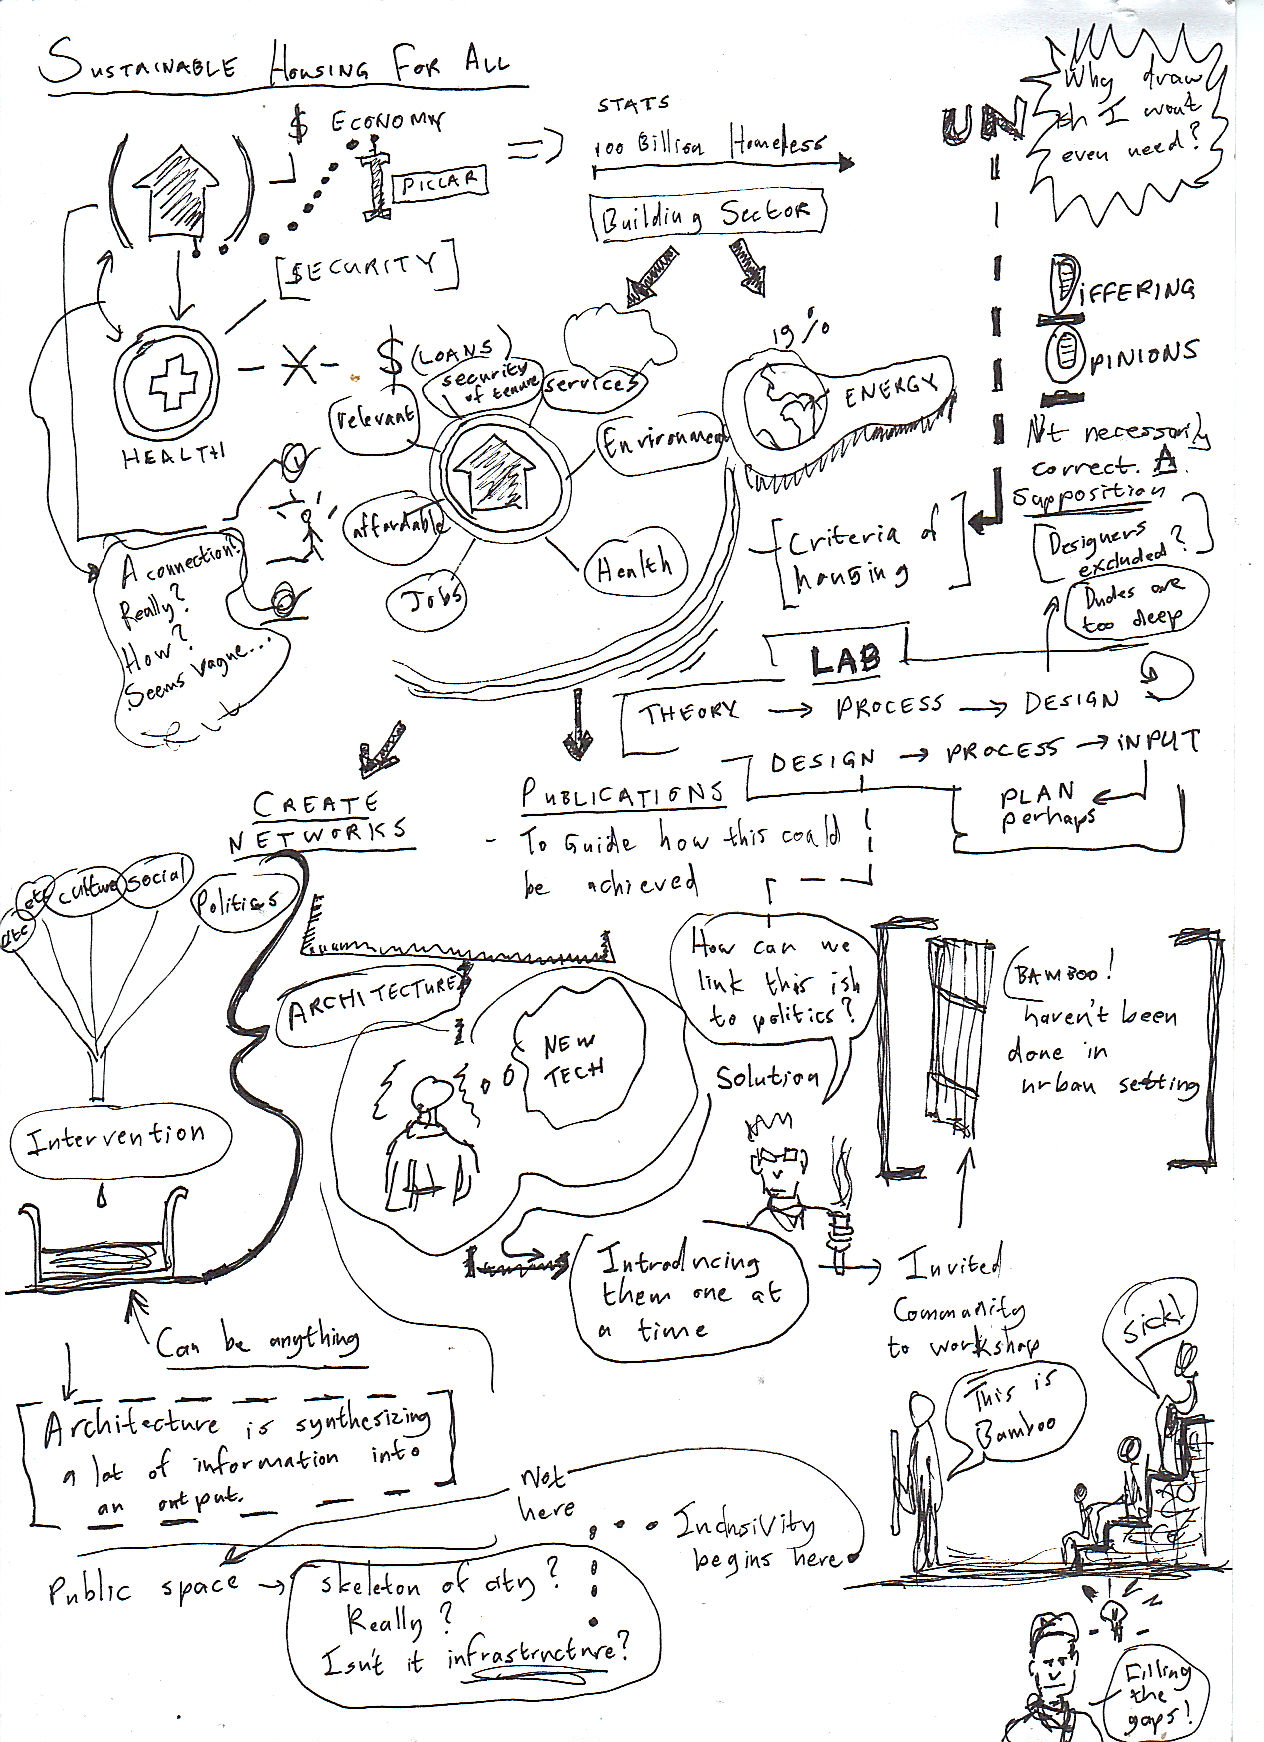 SUSTAINABLE HOUSING FOR ALL
$ ECONOMY
PILLAR
STATS
100 Billion Homeless
Building Sector
UN
Why draw
ish I wont
even need?
[$ECURITY]
HEALTH
$ (LOANS)
relevant
security
of tenure
services
Environment
affordable
Jobs
Health
19%
ENERGY
DIFFERING
OPINIONS
Not necessarily
correct. A.
supposition
Designers
excluded?
Dudes are
too deep
Criteria of
housing
A connection?
Really?
How?
Seems Vague...
LAB
THEORY → PROCESS → DESIGN
DESIGN → PROCESS → INPUT
PLAN
perhaps
CREATE
NETWORKS
PUBLICATIONS
- To Guide how this could
be achieved
etc
etc
culture
social
Politics
Intervention
Can be anything
Architecture is synthesizing
a lot of information into
an output.
ARCHITECTURE
NEW
TECH
How can we
link this ish
to politics?
Solution
Introducing
them one at
a time
BAMBOO!
haven't been
done in
urban setting
Invited
Community
to workshop
This is
Bamboo
Sick!
Not
here
Inclusivity
begins here
Public space →
skeleton of city?
Really?
Isn't it infrastructure?
Filling
the
gaps!